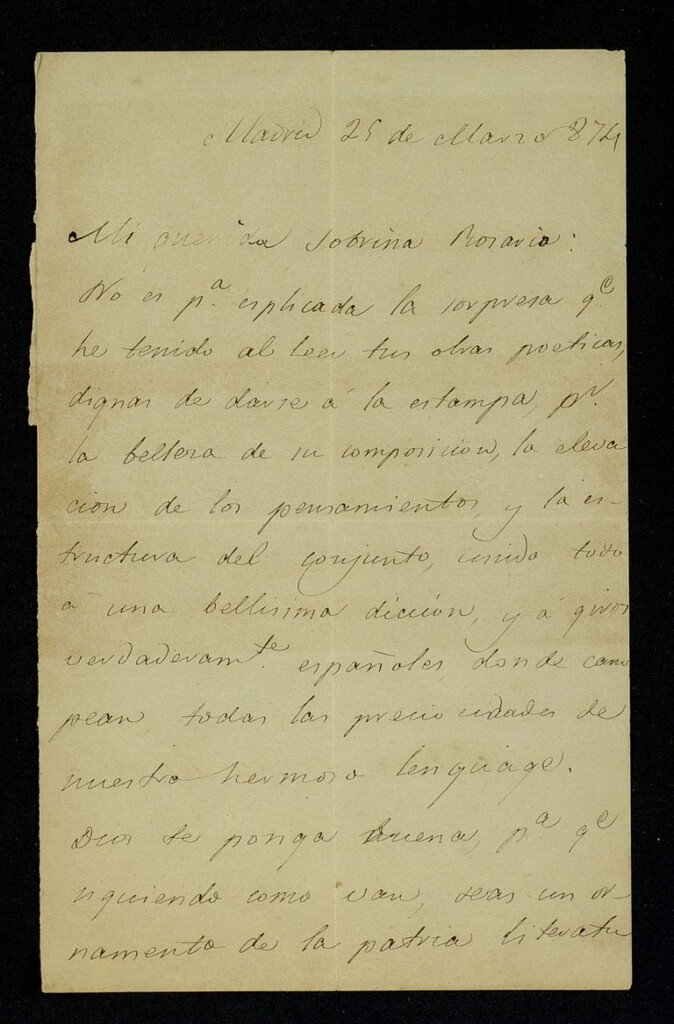 Madrid 25 de Marzo 874
Mi querida Sobrina Rosario:
No es p.ª esplicada la sorpresa q.e
he tenido al leer tus obras poeticas,
dignas de darse á la estampa, p.r
la belleza de su composicion, la eleva
cion de los pensamientos, y la es-
tructura del conjunto, unido todo
á una bellisima diccion, y á giros
verdaderam.te españoles, donde cam
pean, todas las preciosidades de
nuestro hermoso lenguage.
Dios te ponga buena, p.ª q.e
siguiendo como van, seas un or-
namento de la patria literatu